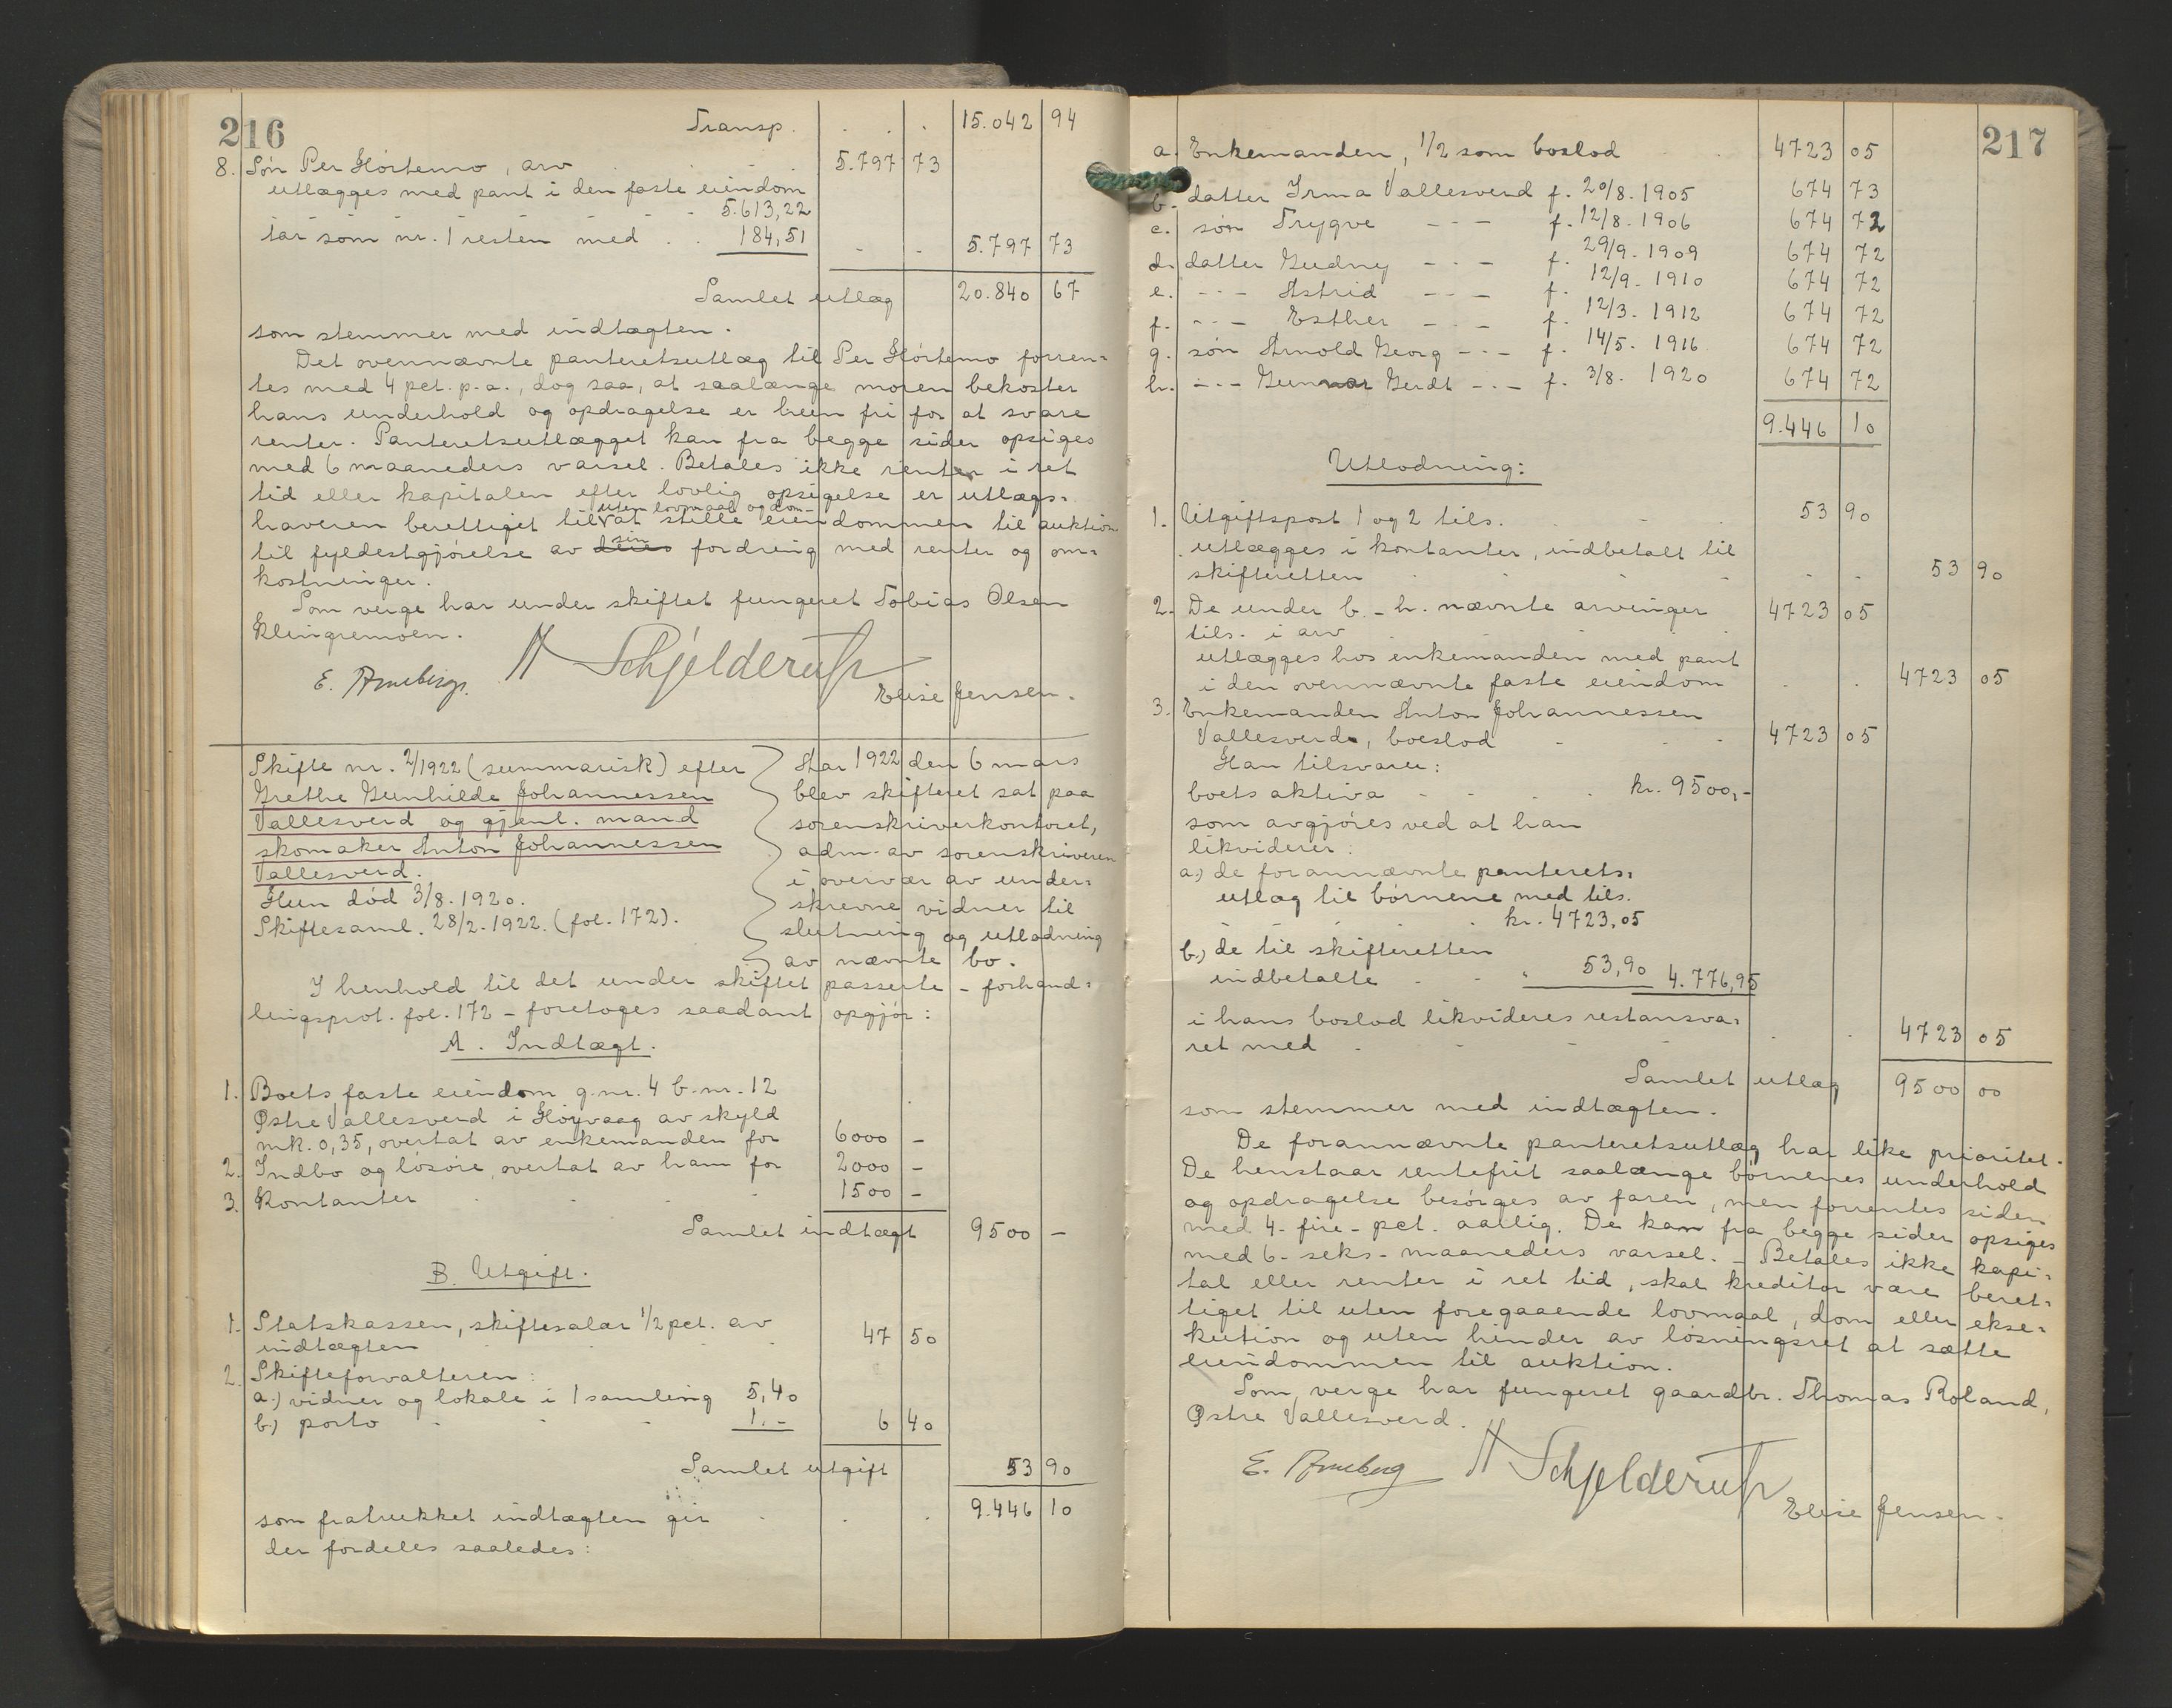 216
Transp. . . . 15.042 94
8. Søn Per Hørtemo, arv . . 5.797 73
utlægges med pant i den faste eiendom
- - - 5.613,22
tar som nr. 1 resten med . . 184,51 - . 5.797 73
Samlet utlæg 20.840 67
som stemmer med indtægten.
Det ovennævnte panteretsutlæg til Per Hørtemo forren=
tes med 4 pct. p.a., dog saa, at saalænge moren bekoster
hans underhold og opdragelse er hun fri for at svare
renter. Panteretsutlægget kan fra begge sider opsiges
med 6 maaneders varsel. Betales ikke renter i ret
tid eller kapitalen efter lovlig opsigelse er utlægs=
uten lovmaal og dom-
haveren berettiget til at stille eiendommen til auktion
sin
til fyldestgjørelse av deres fordring med renter og om=
kostninger.
Som verge har under skiftet fungeret Tobias Olsen
Klingremoen.
E. Arneberg. A Schjelderup
Elise Jensen.
Skifte nr. 2/1922 (summarisk) efter
Grethe Gunhilde Johannessen
Vallesverd og gjenl. mand
skomaker Anton Johannessen
Vallesverd.
Hun død 3/8. 1920.
Skiftesaml. 28/2. 1922. (fol. 172).
Aar 1922 den 6 mars
blev skifteret sat paa
sorenskriverkontoret,
adm. av sorenskriveren
i overvær av under=
skrevne vidner til
slutning og utlodning
av nævnte bo.
I henhold til det under skiftet passerte - forhand=
lingsprot. fol. 172 - foretoges saadant opgjør:
A. Indtægt.
1. Boets faste eiendom g.nr. 4 b.nr. 12
Østre Vallesverd i Høyvaag av skyld
mk. 0,35, overtat av enkemanden for 6000 -
2. Indbo og løsøre, overtat av ham for 2000 -
3. Kontanter . . . . 1500 -
Samlet indtægt 9500 -
B. Utgift.
1. Statskassen, skiftesalær 1/2 pct. av
indtægten . . . . 47 50
2. Skifteforvalteren:
a.) vidner og lokale i 1 samling 5,40
b.) porto - - - 1.- 6 40
Samlet utgift 53 90
som fratrukket indtægten gir . . . 9.446 10
der fordeles saaledes:
217
a. Enkemanden, 1/2 som boslod . 4723 05
b. datter Irma Vallesverd f. 20/8. 1905 674 73
c. søn Trygve - - - f. 12/8. 1906 674 72
d. datter Gudny - - - f. 29/9. 1909 674 72
e. - - - Astrid - - - f. 12/9. 1910 674 72
f. - - - Esther - - - f. 12/3. 1912 674 72
g. søn Arnold Georg - - - f. 14/5. 1916 674 72
h. - - - Gunnar Gerdt - - - f. 3/8. 1920 674 72
9.446 10
Utlodning:
1. Utgiftspost 1 og 2 tils. . - . 53 90
utlægges i kontanter, indbetalt til
skifteretten . . . - . . 53 90
2. De under b. - h. nævnte arvinger 4723 05
tils. i arv . . . .
utlægges hos enkemanden med pant
i den ovennævnte faste eiendom . . 4723 05
3. Enkemanden Anton Johannessen
Vallesverd, boeslod - . - 4723 05
Han tilsvarer:
boets aktiva - - . . kr. 9500,-
som avgjøres ved at han
likviderer:
a.) de forannævnte panterets=
utlæg til børnene med tils.
. . . . kr. 4723,05
b.) de til skifteretten
indbetalte - - " 53,90 4.776,95
i hans boslod likvideres restansva=
ret med . - - - . . 4723 05
Samlet utlæg 9500 00
som stemmer med indtægten.
De forannævnte panteretsutlæg har like prioritet.
De henstaar rentefrit saalænge børnenes underhold
og opdragelse besørges av faren, men forrentes siden
med 4 - fire - pct. aarlig. De kan fra begge sider opsiges
med 6 - seks - maaneders varsel. - Betales ikke kapi=
tal eller renter i ret tid, skal kreditor være beret=
tiget til uten foregaaende lovmaal, dom eller ekse=
kution og uten hinder av løsningsret at sætte
eiendommen til auktion.
Som verge har fungeret gaardbr. Thomas Roland,
Østre Vallesverd.
E. Arneberg A Schjelderup
Elise Jensen.